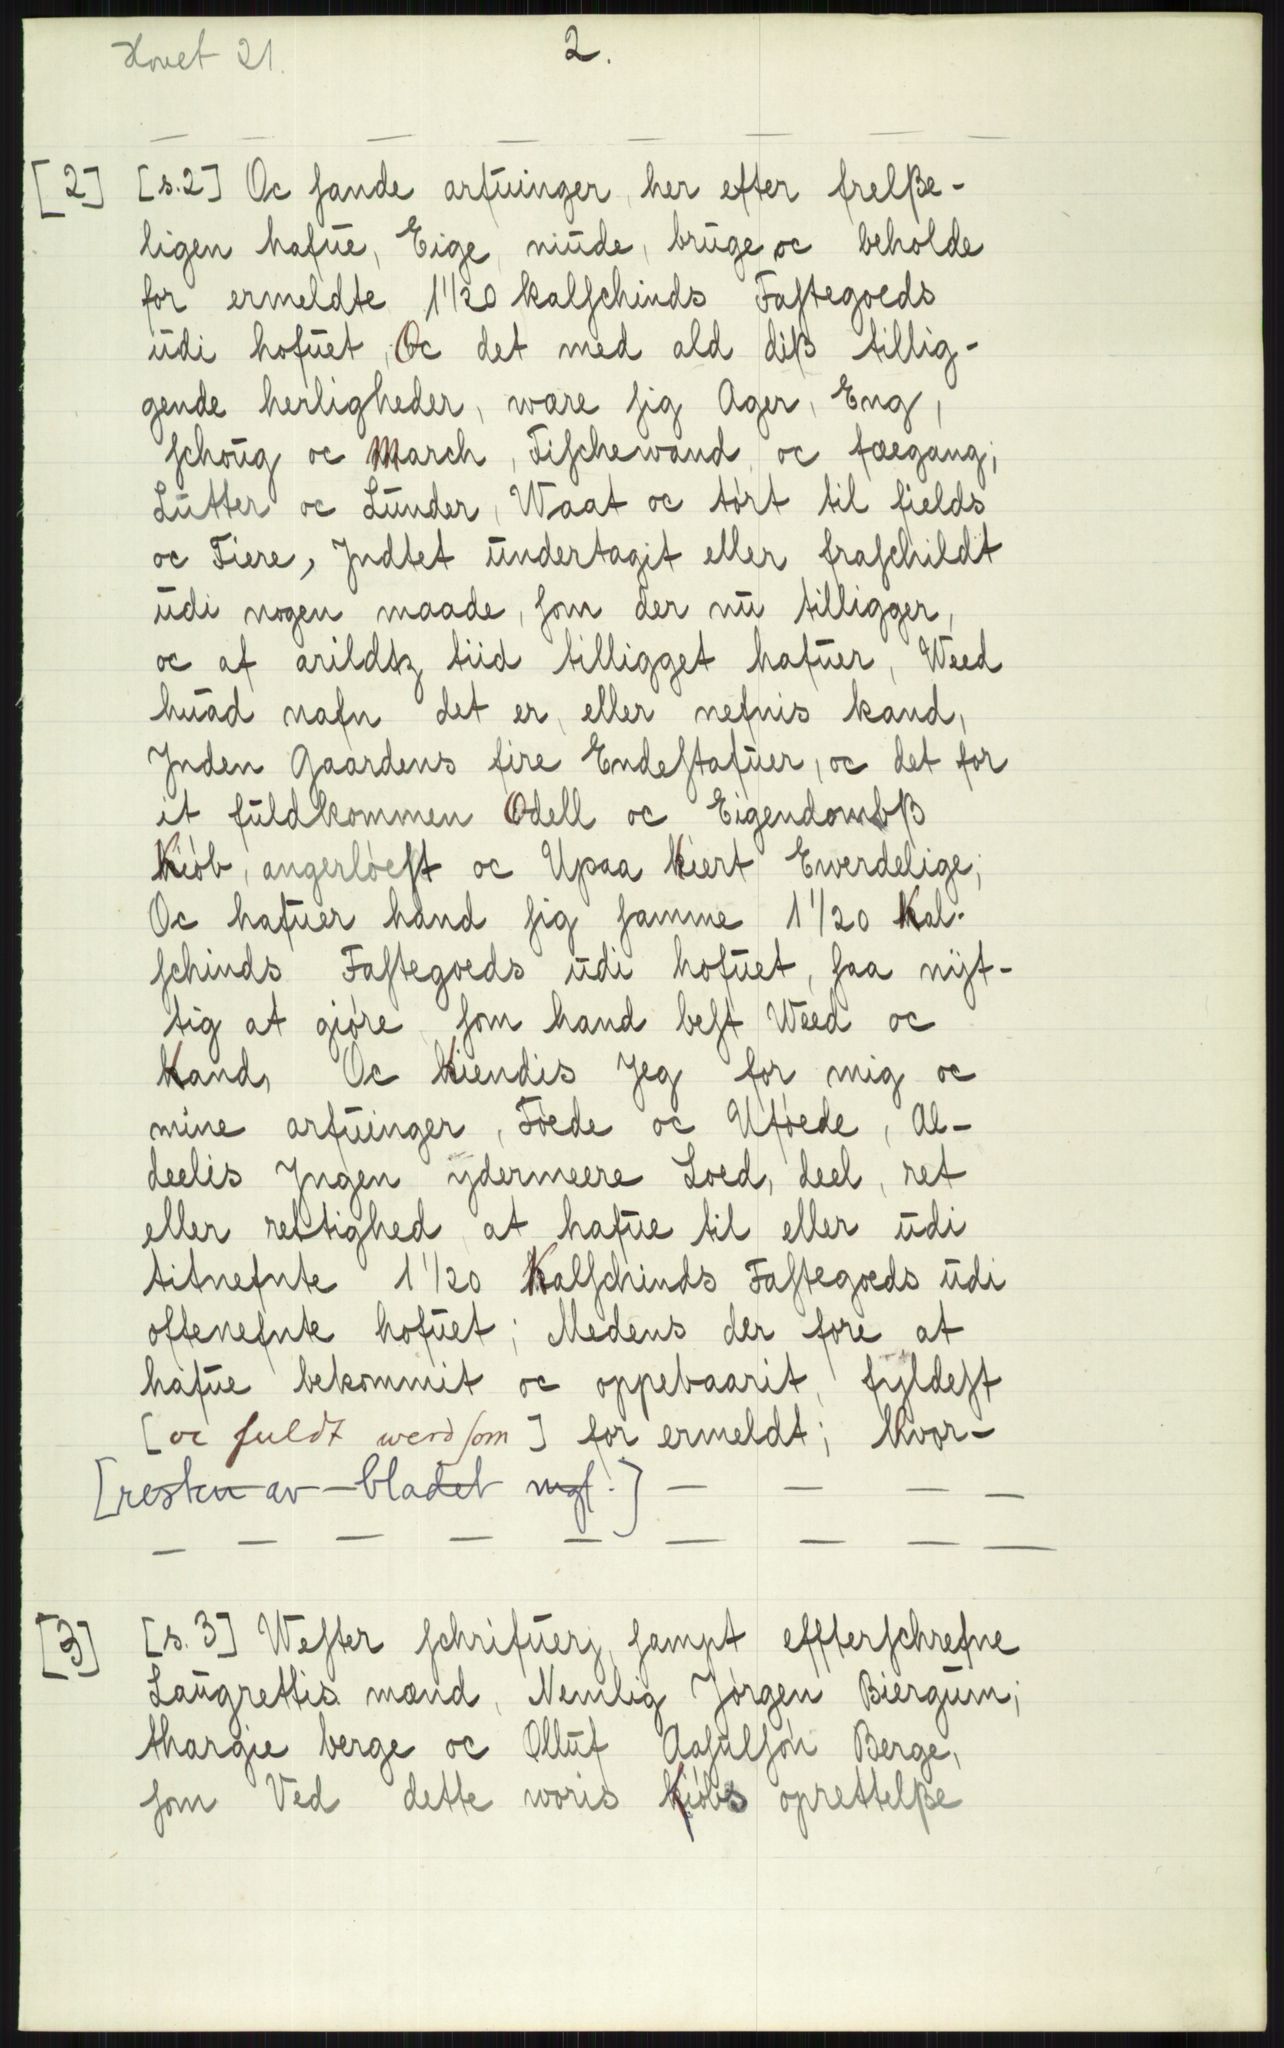 Hovet 21.
2.
[2] [s.2] Oc sande arfūinger, her efter frelße-
ligen hafūe, Eige, niūde, brūge oc beholde
for ermeldte 1 1/20 kalschinds Fastegoeds
ūdi hofūet, Oc det med ald diß tillig-
gende herligheder, wære sig Ager, Eng,
schoūg oc March, Fischewand oc fæegang,
Lūtter oc Lūnder, Waat oc tørt til fields
oc Fiere, Jndtet ūndertagit eller fraschildt
ūdi nogen maade, som der nū tilligger,
oc af arildtz tiid tilligget hafūer, Weed
hūad nafn det er, eller nefnis kand,
Jnden Gaardens fire Endestafūer, oc det for
it fūldkommen Odell oc Eigendombß
Kiøb, angerløest oc Upaa Kiert Ewerdelige,
Oc hafūer hand sig samme 1 1/20 Kal-
schinds Fastegoeds ūdi hofūet, saa nyt-
tig at giøre som hand best Weed oc
Kand, Oc Kiendis Jeg for mig oc
mine arfūinger, Føede oc Uføede, Al-
deelis Jngen ydermeere Loed, deel, ret
eller rettighed at hafūe til eller ūdi
titnefnte 1 1/20 Kalschinds Fastegoeds ūdi
oftenefnte hofūet; Medens der fore at
hafūe bekommit oc oppebaarit, fyldest
[oc fuldt werd som] for ermeldt; Hvor-
[resten av bladet mgl.]
[3] [s.3] Wester schrifūer, sampt effterschrefne
Laūgrettis mænd, Nemlig Jørgen Biergūm;
thargie berge oc Ollūf Aasūlsøn Berge,
som Ved dette woris Kiøbs oprettelße